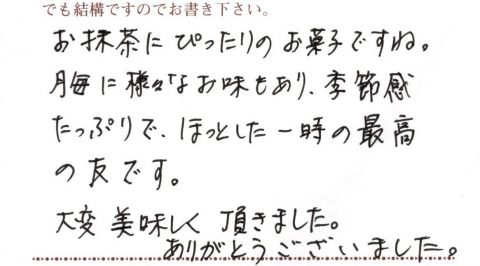 でも結構ですのでお書き下さい。
お抹茶にぴったりのお菓子ですね。
月毎に様々なお味もあり、季節感
たっぷりで、ほっとした一時の最高
の友です。
大変美味しく頂きました。
ありがとうございました。